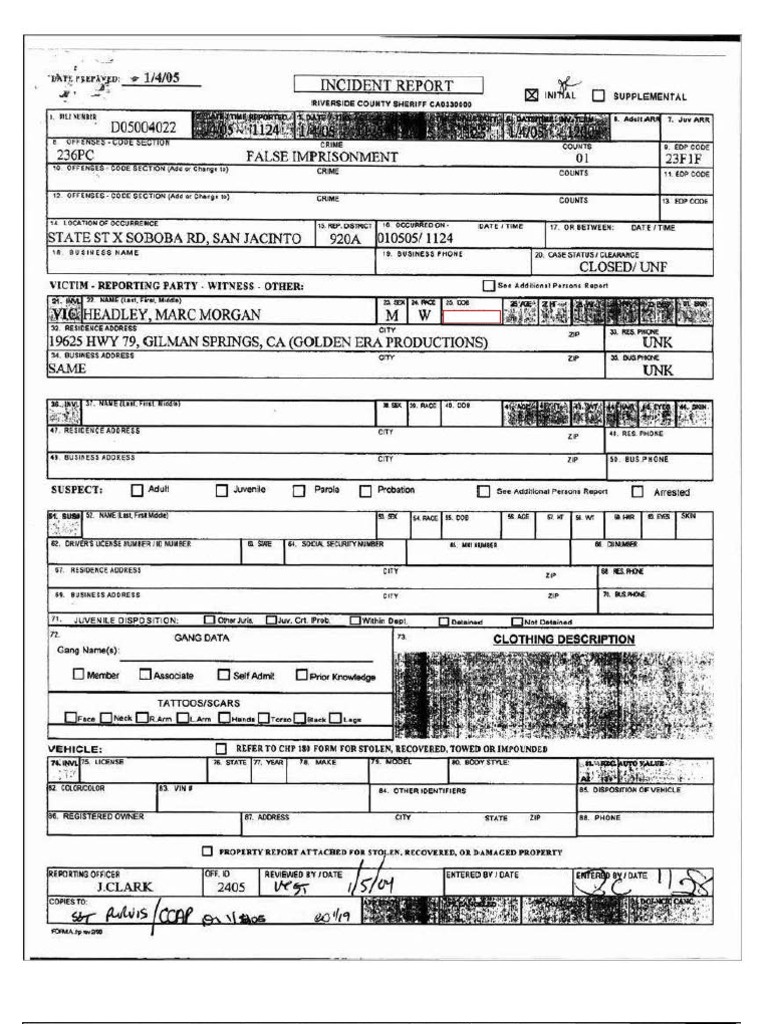 DATE PREPARED: 1/4/05
INCIDENT REPORT
RIVERSIDE COUNTY SHERIFF CA0330000
INITIAL SUPPLEMENTAL
1. FILE NUMBER D05004022
2. DATE / TIME REPORTED 1124
6. Adult ARR 7. Juv ARR
8. OFFENSES - CODE SECTION CRIME COUNTS 9. EDP CODE
236PC FALSE IMPRISONMENT 01 23F1F
10. OFFENSES - CODE SECTION (Add or Change to) CRIME COUNTS 11. EDP CODE
12. OFFENSES - CODE SECTION (Add or Change to) CRIME COUNTS 13. EDP CODE
14. LOCATION OF OCCURRENCE 15. REP. DISTRICT 16. OCCURRED ON - DATE / TIME 17. OR BETWEEN: DATE / TIME
STATE ST X SOBOBA RD, SAN JACINTO 920A 010505/ 1124
18. BUSINESS NAME 19. BUSINESS PHONE 20. CASE STATUS / CLEARANCE
CLOSED/ UNF
VICTIM - REPORTING PARTY - WITNESS - OTHER: See Additional Persons Report
21. INVL 22. NAME (Last, First, Middle) 23. SEX 24. RACE 25. DOB
VIC HEADLEY, MARC MORGAN M W
32. RESIDENCE ADDRESS CITY ZIP 33. RES. PHONE
19625 HWY 79, GILMAN SPRINGS, CA (GOLDEN ERA PRODUCTIONS) UNK
34. BUSINESS ADDRESS CITY ZIP 35. BUS.PHONE
SAME UNK
36. INVL 37. NAME (Last, First, Middle) 38. SEX 39. RACE 40. DOB
47. RESIDENCE ADDRESS CITY ZIP 48. RES. PHONE
49. BUSINESS ADDRESS CITY ZIP 50. BUS. PHONE
SUSPECT: Adult Juvenile Parole Probation See Additional Persons Report Arrested
51. SUS# 52. NAME (Last, First Middle) 53. SEX 54. RACE 55. DOB 56. AGE 57. HT 58. WT 59. HAIR 60. EYES SKIN
62. DRIVER'S LICENSE NUMBER / ID NUMBER 63. STATE 64. SOCIAL SECURITY NUMBER NUMBER
67. RESIDENCE ADDRESS CITY ZIP 68. RES. PHONE
69. BUSINESS ADDRESS CITY ZIP 70. BUS. PHONE
71. JUVENILE DISPOSITION: Other Juris. Juv. Crt. Prob. Within Dept. Detained Not Detained
72. GANG DATA 73. CLOTHING DESCRIPTION
Gang Name(s):
Member Associate Self Admit Prior Knowledge
TATTOOS/SCARS
Face Neck R.Arm L.Arm Hands Torso Back Legs
VEHICLE: REFER TO CHP 180 FORM FOR STOLEN, RECOVERED, TOWED OR IMPOUNDED
74. INVL 75. LICENSE 76. STATE 77. YEAR 78. MAKE 79. MODEL 80. BODY STYLE: AUTO VALUE
82. COLOR/COLOR 83. VIN # 84. OTHER IDENTIFIERS 85. DISPOSITION OF VEHICLE
86. REGISTERED OWNER 87. ADDRESS CITY STATE ZIP 88. PHONE
PROPERTY REPORT ATTACHED FOR STOLEN, RECOVERED, OR DAMAGED PROPERTY
REPORTING OFFICER OFF. ID REVIEWED BY / DATE ENTERED BY / DATE ENTERED BY / DATE
J.CLARK 2405 1/5/04 1/28
COPIES TO:
SGT PURVIS/CCAP